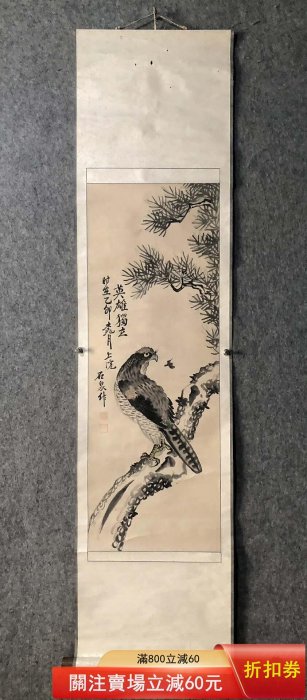 英雄獨立
時在乙卯
上浣
滿800立減60
關注賣場立減60元
折扣券